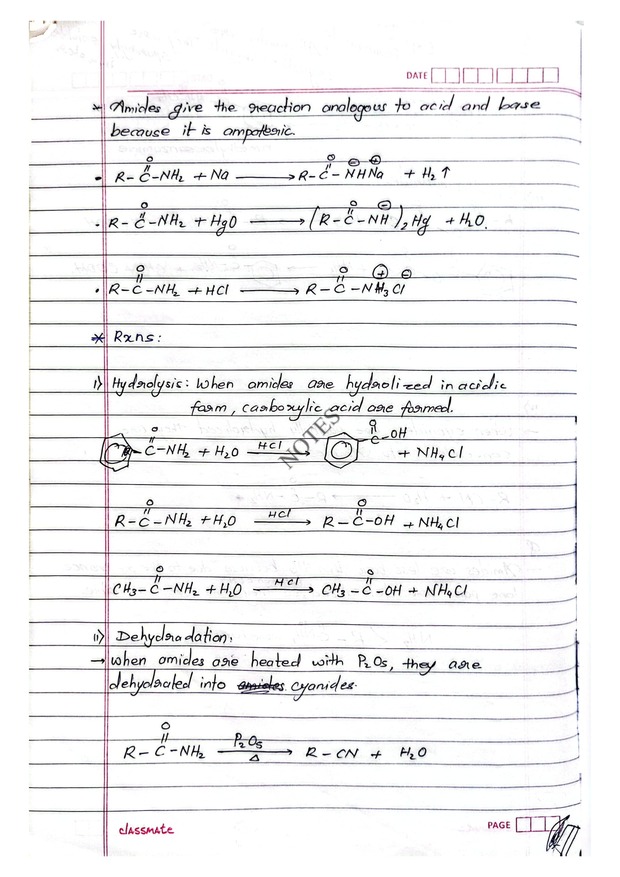 DATE
* Amides give the reaction analogous to acid and base
because it is ampotheric.
• R-C(=O)-NH₂ + Na ⟶ R-C(=O)-N⊖HNa⊕ + H₂↑
• R-C(=O)-NH₂ + HgO ⟶ (R-C(=O)-NH⊖)₂Hg + H₂O.
• R-C(=O)-NH₂ + HCl ⟶ R-C(=O)-NH₃⊕Cl⊖
* Rxns:
i) Hydrolysis: When amides are hydrolized in acidic
form, carboxylic acid are formed.
-C(=O)-NH₂ + H₂O —HCl⟶ C(=O)-OH + NH₄Cl
NOTES
R-C(=O)-NH₂ + H₂O —HCl⟶ R-C(=O)-OH + NH₄Cl
CH₃-C(=O)-NH₂ + H₂O —HCl⟶ CH₃-C(=O)-OH + NH₄Cl
ii) Dehydradation:
→ When amides are heated with P₂O₅, they are
dehydrated into cyanides.
R-C(=O)-NH₂ —P₂O₅/Δ⟶ R-CN + H₂O
classmate
PAGE